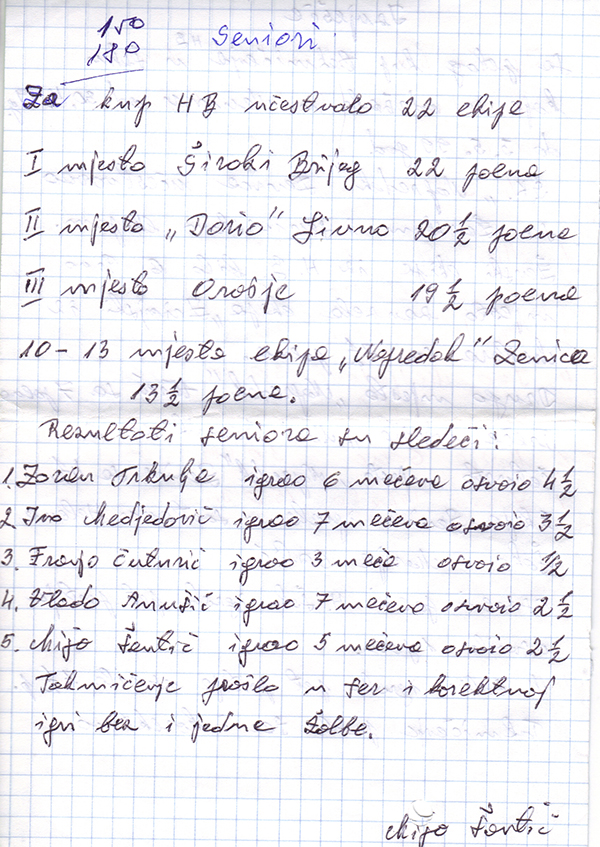 150
180
Seniori
Za kup HB učestvalo 22 ekipe
I mjesto Široki Brijeg 22 poena
II mjesto „Dorio" Livno 20 1/2 poena
III mjesto Orašje 19 1/2 poena
10 - 13 mjesta ekipa „Napredak" Zenica
13 1/2 poena.
Rezultati seniora su sledeći:
1. Zoran Trkulja igrao 6 mečeva osvoio 4 1/2
2. Ivo Medjedović igrao 7 mečeva osvoio 3 1/2
3. Franjo Čuturić igrao 3 meča osvoio 1/2
4. Vlado Anušić igrao 7 mečeva osvoio 2 1/2
5. Mijo Šantić igrao 5 mečeva osvoio 2 1/2
Takmičenje prošlo u fer i korektnoj
igri bez i jedne žalbe.
Mijo Šantić